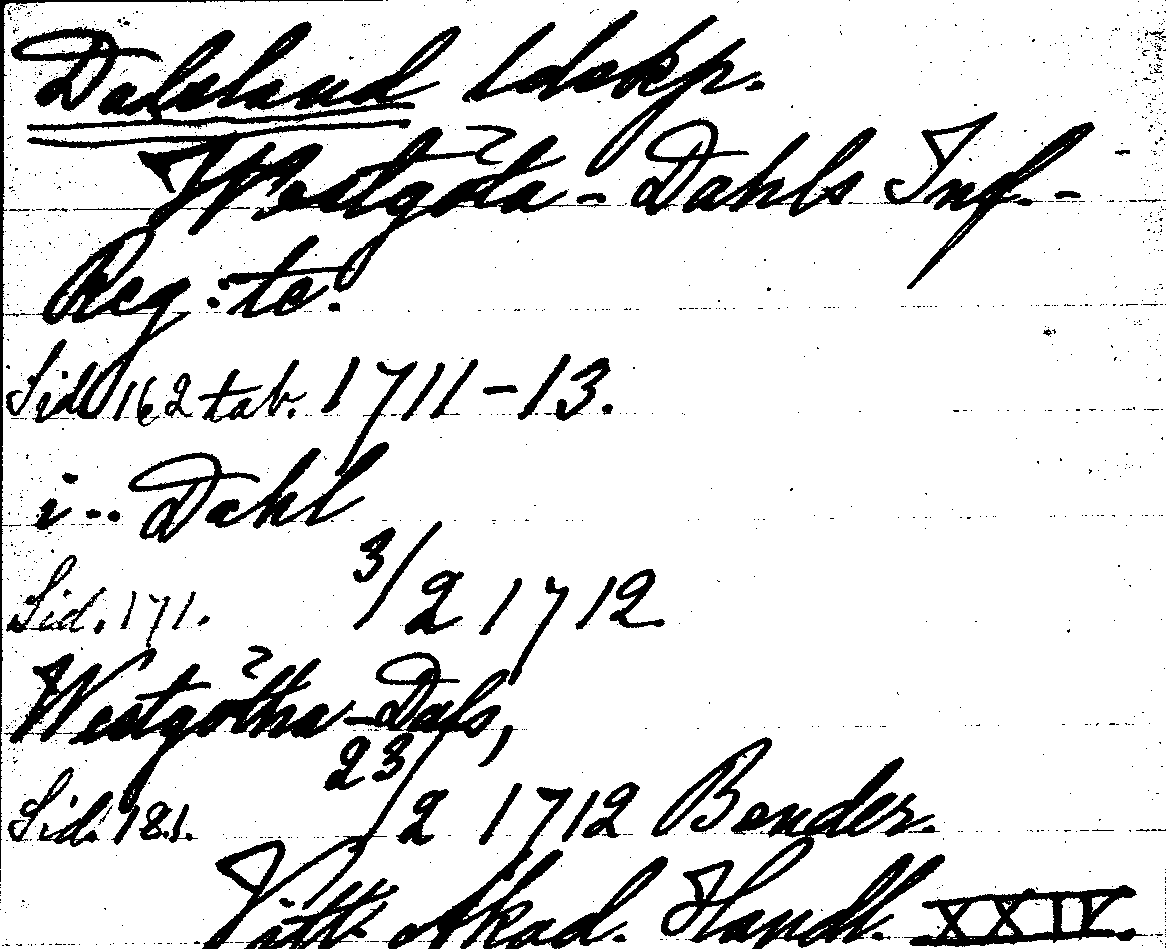 Dalsland ldskp.
Westgöta-Dahls Inf.-
Reg:te.
Sid. 162 tab. 1711-13.
i.. Dahl
Sid. 171. 3/2 1712
Westgötha-Dals,
Sid. 181. 23/2 1712 Bender.
Vitt. Akad. Handl. XXIV.